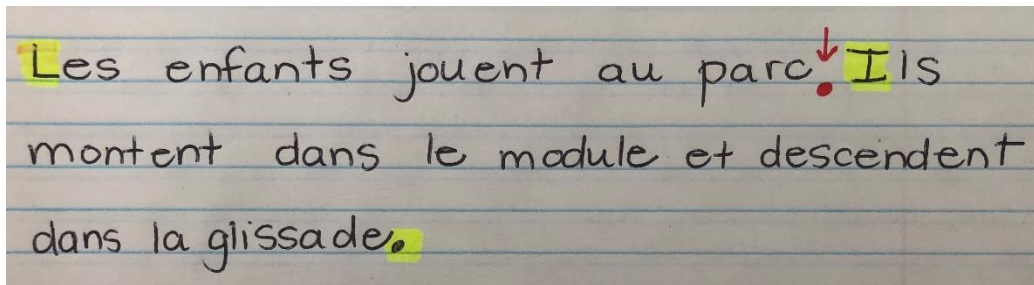 Les enfants jouent au parc. Ils
montent dans le module et descendent
dans la glissade.